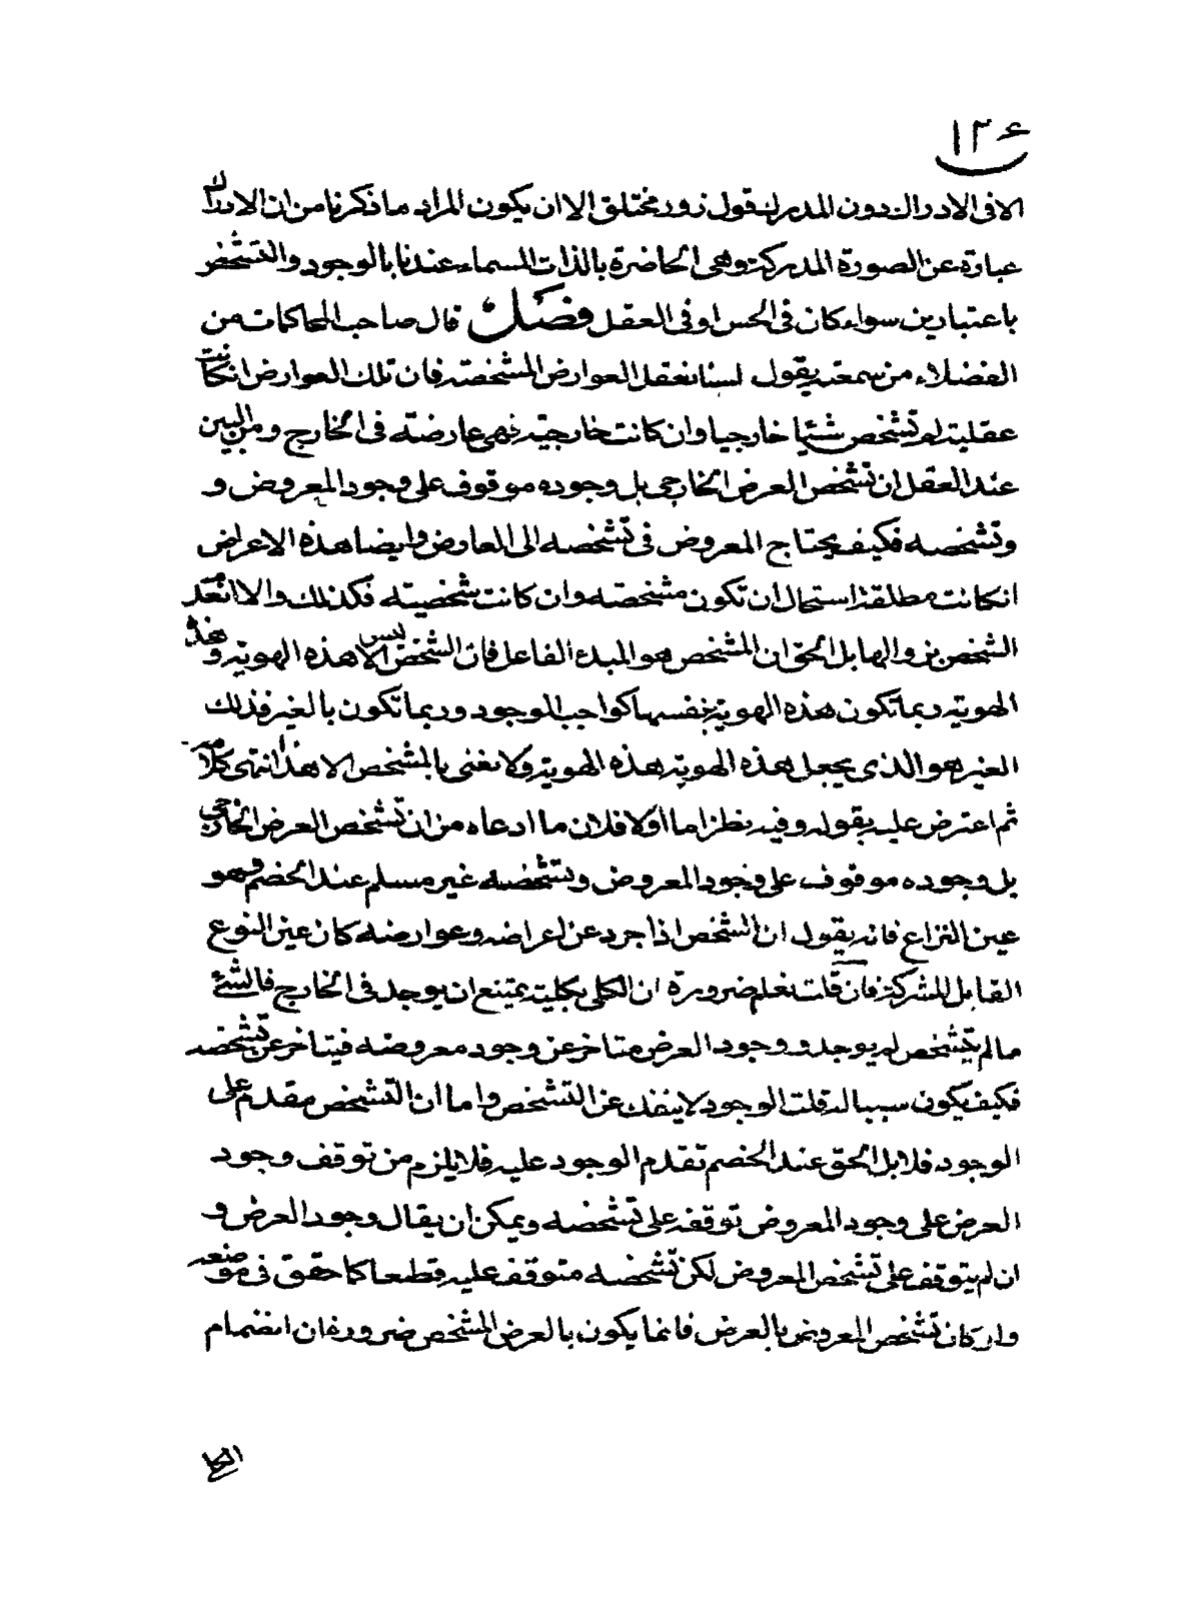 ١٢٦
الا فى الادراك دون المدرك قول زور مختلق الا ان يكون المراد ما ذكرنا من ان الادراك
عبارة عن الصورة المدركة وهى الحاضرة بالذات المسماة عندنا بالوجود والتشخص
باعتبارين سواء كان فى الحس او فى العقل فصل قال صاحب المحاكمات من
الفضلاء من سمعته يقول لسنا نعقل العوارض المشخصة فان تلك العوارض ان كانت
عقلية لم تشخص شيئا خارجيا وان كانت خارجية فهى عارضة فى الخارج ومن البين
عند العقل ان تشخص العرض الخارجى بل وجوده موقوف على وجود المعروض و
وتشخصه فكيف يحتاج المعروض فى تشخصه الى العارض وايضا هذه الاعراض
انكانت مطلقة استحال ان تكون مشخصة وان كانت شخصية فكذلك والا انعد
الشخص بزوالها بل الحق ان المشخص هو المبدء الفاعل فان الشخص ليس الا هذه الهوية و
الهوية ربما تكون هذه الهوية بنفسها كواجب الوجود وربما تكون بالغير فذلك
الغير هو الذى يجعل هذه الهوية هذه الهوية ولا نعنى بالمشخص الا هذا انتهى كلامه
ثم اعترض عليه بقوله وفيه نظر اما اولا فلان ما ادعاه من ان تشخص العرض الخارجى
بل وجوده موقوف على وجود المعروض وتشخصه غير مسلم عند الخصم وهو
عين النزاع فانه يقول ان الشخص اذا جرد عن اعراضه وعوارضه كان عين النوع
القابل للشركة فان قلت نعلم ضرورة ان الكلى بكليته يمتنع ان يوجد فى الخارج فالشئ
مالم يتشخص لم يوجد ووجود العرض متاخر عن وجود معروضه فيتاخر عن تشخصه
فكيف يكون سببا له قلت الوجود لا ينفك عن التشخص واما ان التشخص مقدم على
الوجود فلا بل الحق عند الخصم تقدم الوجود عليه فلا يلزم من توقف وجود
العرض على وجود المعروض توقفه على تشخصه ويمكن ان يقال وجود العرض و
ان لم يتوقف على تشخص المعروض لكن تشخصه متوقف عليه قطعا كما حقق فى موضعه
وان كان تشخص المعروض بالعرض فانما يكون بالعرض المشخص ضرورة ان انضمام